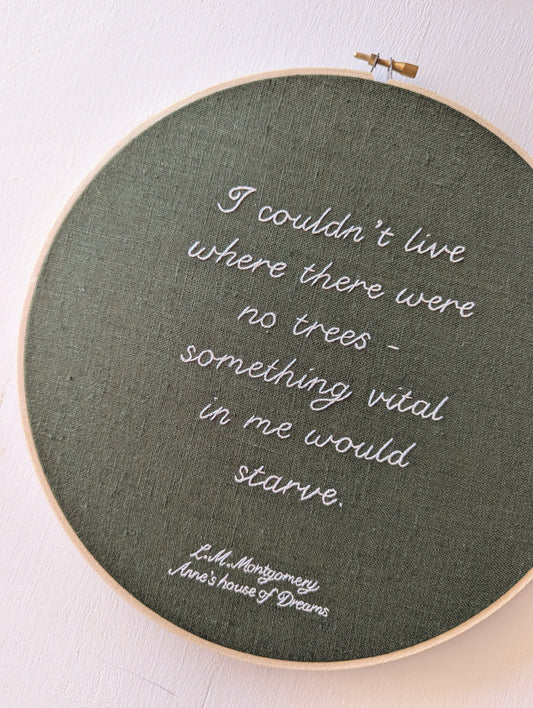 I couldn't live
where there were
no trees -
something vital
in me would
starve.
L.M.Montgomery
Anne's house of Dreams